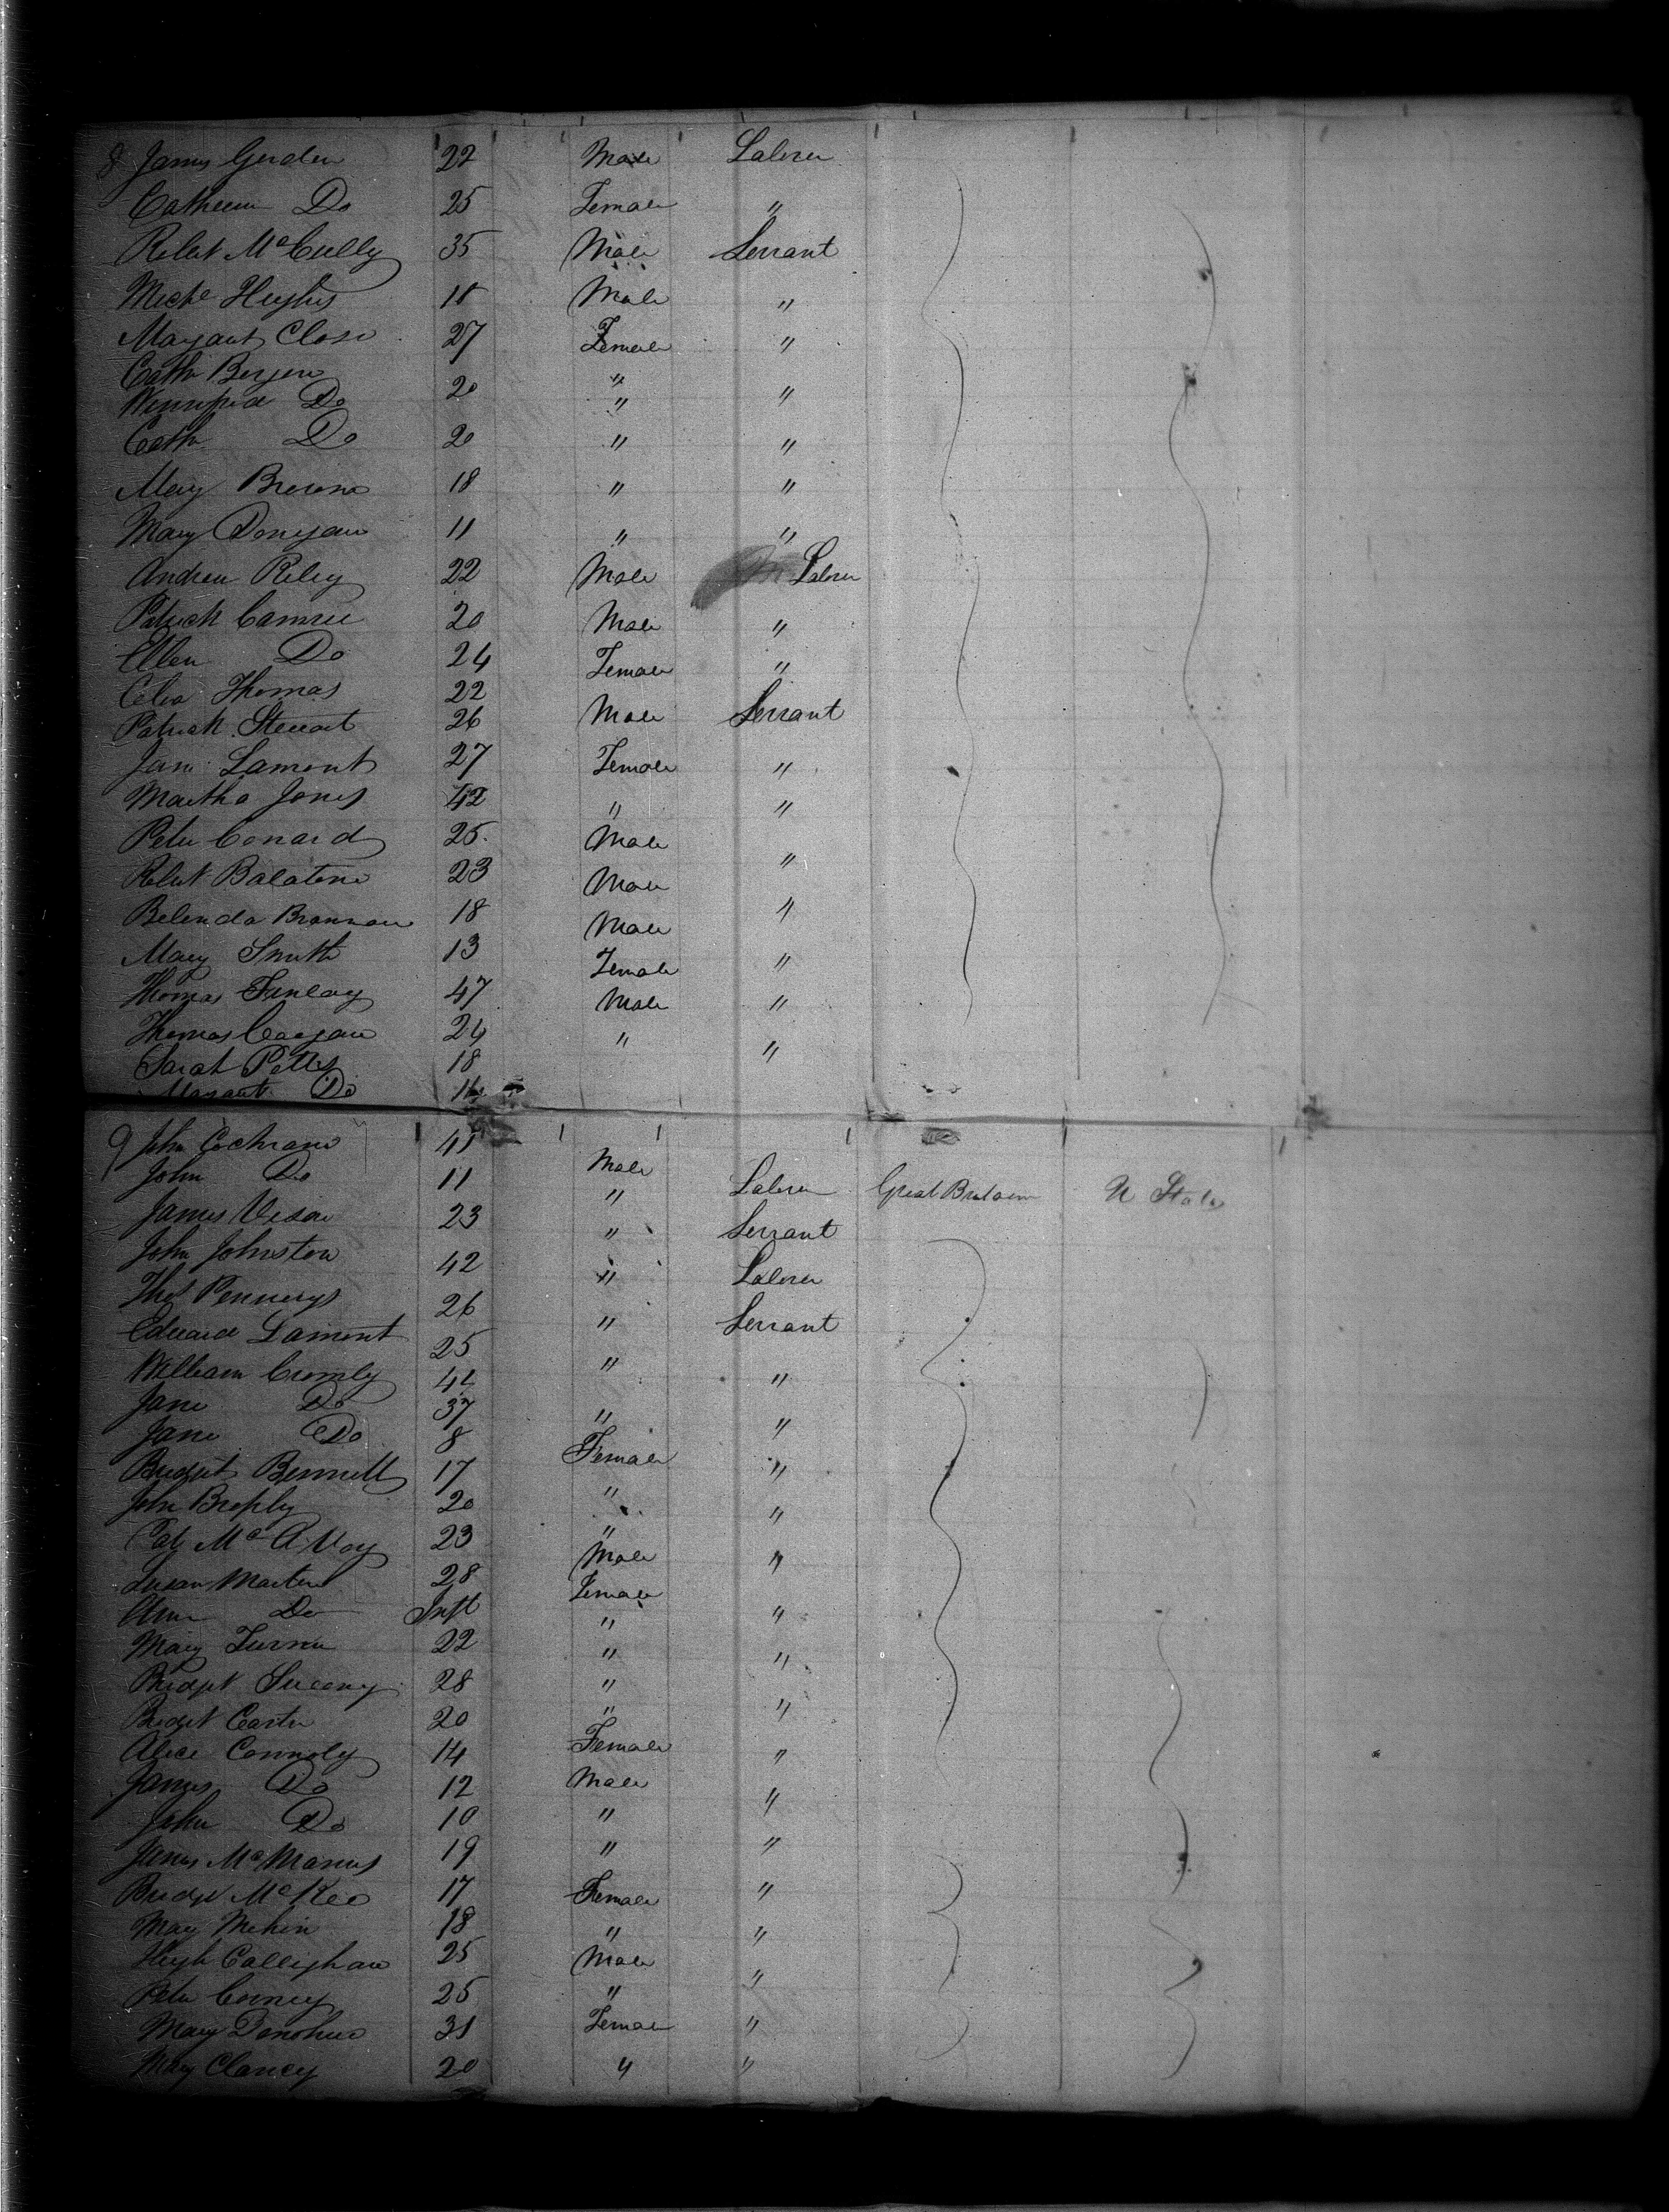 8 James Gerden 22 Male Laborer
Catheren Do 25 Female "
Robert McCully 35 Male Servant
Michl Hughes 18 Male "
Margaret Close 27 Female "
Cath Bergen "
Winnifred Do 20 " "
Cath Do 20 " "
Mary Browne 18 " "
Mary Donegan 11 " "
Andrew Riley 22 Male Laborer
Patrick 20 Male "
Ellen Do 24 Female "
Celia Thomas 22
Patrick Stewart 26 Male Servant
Jane Lamont 27 Female "
Martha Jones 42 " "
Peter Conard 25 Male "
Robert Balatine 23 Male
Belenda Brannan 18 Male "
Mary Smith 13 Female "
Thomas Finlay 47 Male "
Thomas 24 " "
Sarah Pettes 18
Margaret Do
9 John Cochrane 41 Male
John Do 11 " Laborer Great Britain U States
James 23 " Servant
John Johnston 42 " Laborer
Thos 26 " Servant
Edward Lamont 25 " "
William Cromly 42
Jane Do 37 " "
Jane Do 8 Female "
Bridget Bennett 17 "
John Brophy 20 "
Pat McAVoy 23 Male "
Susan Martin 28 Female
Ann Do Inft " "
Mary Turner 22 " "
Bridget Sweeny 28 "
Bridget Carter 20 " "
Alice Connoly 14 Female "
James Do 12 Male "
John Do 10 "
James McManus 19 " "
Bridget McKee 17 Female "
Mary 18 " "
Hugh Callighan 25 Male "
Peter 25 "
Mary Donohue 31 Female "
Mary Clancy 20 " "